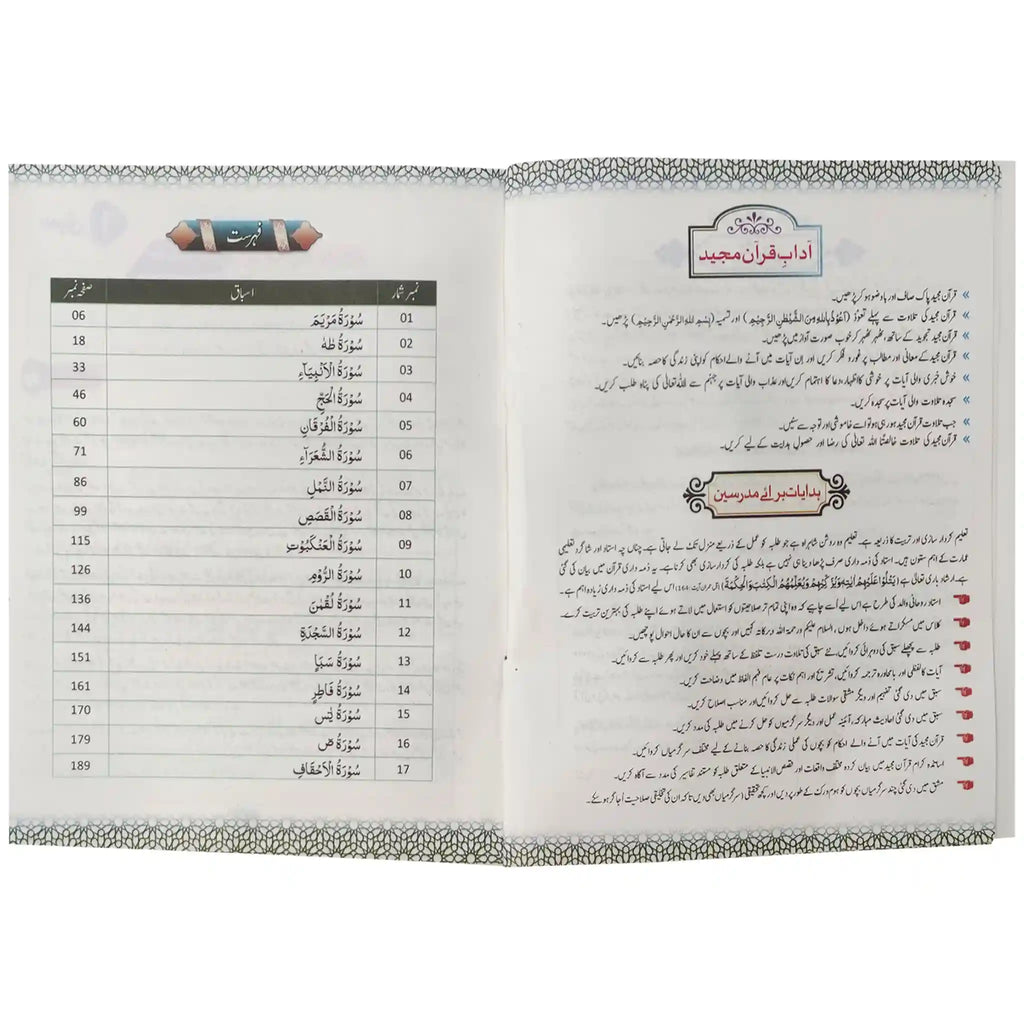 آداب قرآن مجید
قرآن مجید پاک صاف اور باوضو ہو کر پڑھیں۔
قرآن مجید کی تلاوت سے پہلے تعوذ (اَعُوْذُ بِاللّٰهِ مِنَ الشَّيْطٰنِ الرَّجِيْمِ) اور تسمیہ (بِسْمِ اللّٰهِ الرَّحْمٰنِ الرَّحِيْمِ) پڑھیں۔
قرآن مجید تجوید کے ساتھ، ٹھہر ٹھہر کر خوب صورت آواز میں پڑھیں۔
قرآن مجید کے معانی اور مطالب پر غور و فکر کریں اور ان آیات میں آنے والے احکام کو اپنی زندگی کا حصہ بنائیں۔
خوش خبری والی آیات پر خوشی کا اظہار، دعا کا اہتمام کریں اور عذاب والی آیات پر جہنم سے اللہ تعالیٰ کی پناہ طلب کریں۔
سجدہ تلاوت والی آیات پر سجدہ کریں۔
جب تلاوت قرآن مجید ہو رہی ہو تو اسے خاموشی اور توجہ سے سنیں۔
قرآن مجید کی تلاوت خالصتاً اللہ تعالیٰ کی رضا اور حصول ہدایت کے لیے کریں۔
ہدایات برائے مدرسین
تعلیم کردار سازی اور تربیت کا ذریعہ ہے۔ تعلیم وہ روشن شاہراہ ہے جو طلبہ کو عمل کے ذریعے منزل تک لے جاتی ہے۔ چناں چہ استاد اور شاگرد تعلیمی
عمارت کے اہم ستون ہیں۔ استاد کی ذمہ داری صرف پڑھا دینا ہی نہیں ہے بلکہ طلبہ کی کردار سازی بھی کرنا ہے۔ یہ ذمہ داری قرآن میں بیان کی گئی
ہے۔ ارشاد باری تعالیٰ ہے (يَتْلُوْا عَلَيْهِمْ اٰيٰتِهٖ وَيُزَكِّيْهِمْ وَيُعَلِّمُهُمُ الْكِتٰبَ وَالْحِكْمَةَ) (آل عمران، آیت: 164) اس لیے استاد کی ذمہ داری زیادہ اہم ہے۔
استاد روحانی والد کی طرح ہے اس لیے اُسے چاہیے کہ وہ اپنی تمام تر صلاحیتوں کو استعمال میں لاتے ہوئے اپنے طلبہ کی بہترین تربیت کرے۔
کلاس میں مسکراتے ہوئے داخل ہوں، السلام علیکم ورحمۃ اللہ وبرکاتہ کہیں اور بچوں سے ان کا حال احوال پوچھیں۔
طلبہ سے پچھلے سبق کی دوہرائی کروائیں، نئے سبق کی تلاوت درست تلفظ کے ساتھ پہلے خود کریں اور پھر طلبہ سے کروائیں۔
آیات کا لفظی اور بامحاورہ ترجمہ کروائیں، تشریح اور اہم نکات پر عام فہم الفاظ میں وضاحت کریں۔
سبق میں دی گئی تفہیم اور دیگر مشقی سوالات طلبہ سے حل کروائیں اور مناسب اصلاح کریں۔
سبق میں دی گئی احادیث مبارکہ، آئینہ عمل اور دیگر سرگرمیوں کو حل کرنے میں طلبہ کی مدد کریں۔
قرآن مجید کی آیات میں آنے والے احکام کو بچوں کی عملی زندگی کا حصہ بنانے کے لیے مختلف سرگرمیاں کروائیں۔
اساتذہ کرام قرآن مجید میں بیان کردہ مختلف واقعات اور قصص الانبیا کے متعلق طلبہ کو مستند تفاسیر کی مدد سے آگاہ کریں۔
مشق میں دی گئی چند سرگرمیاں بچوں کو ہوم ورک کے طور پر دیں اور کچھ تحقیقی سرگرمیاں بھی دیں تاکہ ان کی تخلیقی صلاحیت اُجاگر ہو سکے۔
فہرست
نمبر شمار اسباق صفحہ نمبر
01 سُوْرَةُ مَرْيَمَ 06
02 سُوْرَةُ طٰهٰ 18
03 سُوْرَةُ الْاَنْبِيَآءِ 33
04 سُوْرَةُ الْحَجِّ 46
05 سُوْرَةُ الْفُرْقَانِ 60
06 سُوْرَةُ الشُّعَرَآءِ 71
07 سُوْرَةُ النَّمْلِ 86
08 سُوْرَةُ الْقَصَصِ 99
09 سُوْرَةُ الْعَنْكَبُوْتِ 115
10 سُوْرَةُ الرُّوْمِ 126
11 سُوْرَةُ لُقْمٰنَ 136
12 سُوْرَةُ السَّجْدَةِ 144
13 سُوْرَةُ سَبَاٍ 151
14 سُوْرَةُ فَاطِرٍ 161
15 سُوْرَةُ يٰسٓ 170
16 سُوْرَةُ صٓ 179
17 سُوْرَةُ الْاَحْقَافِ 189